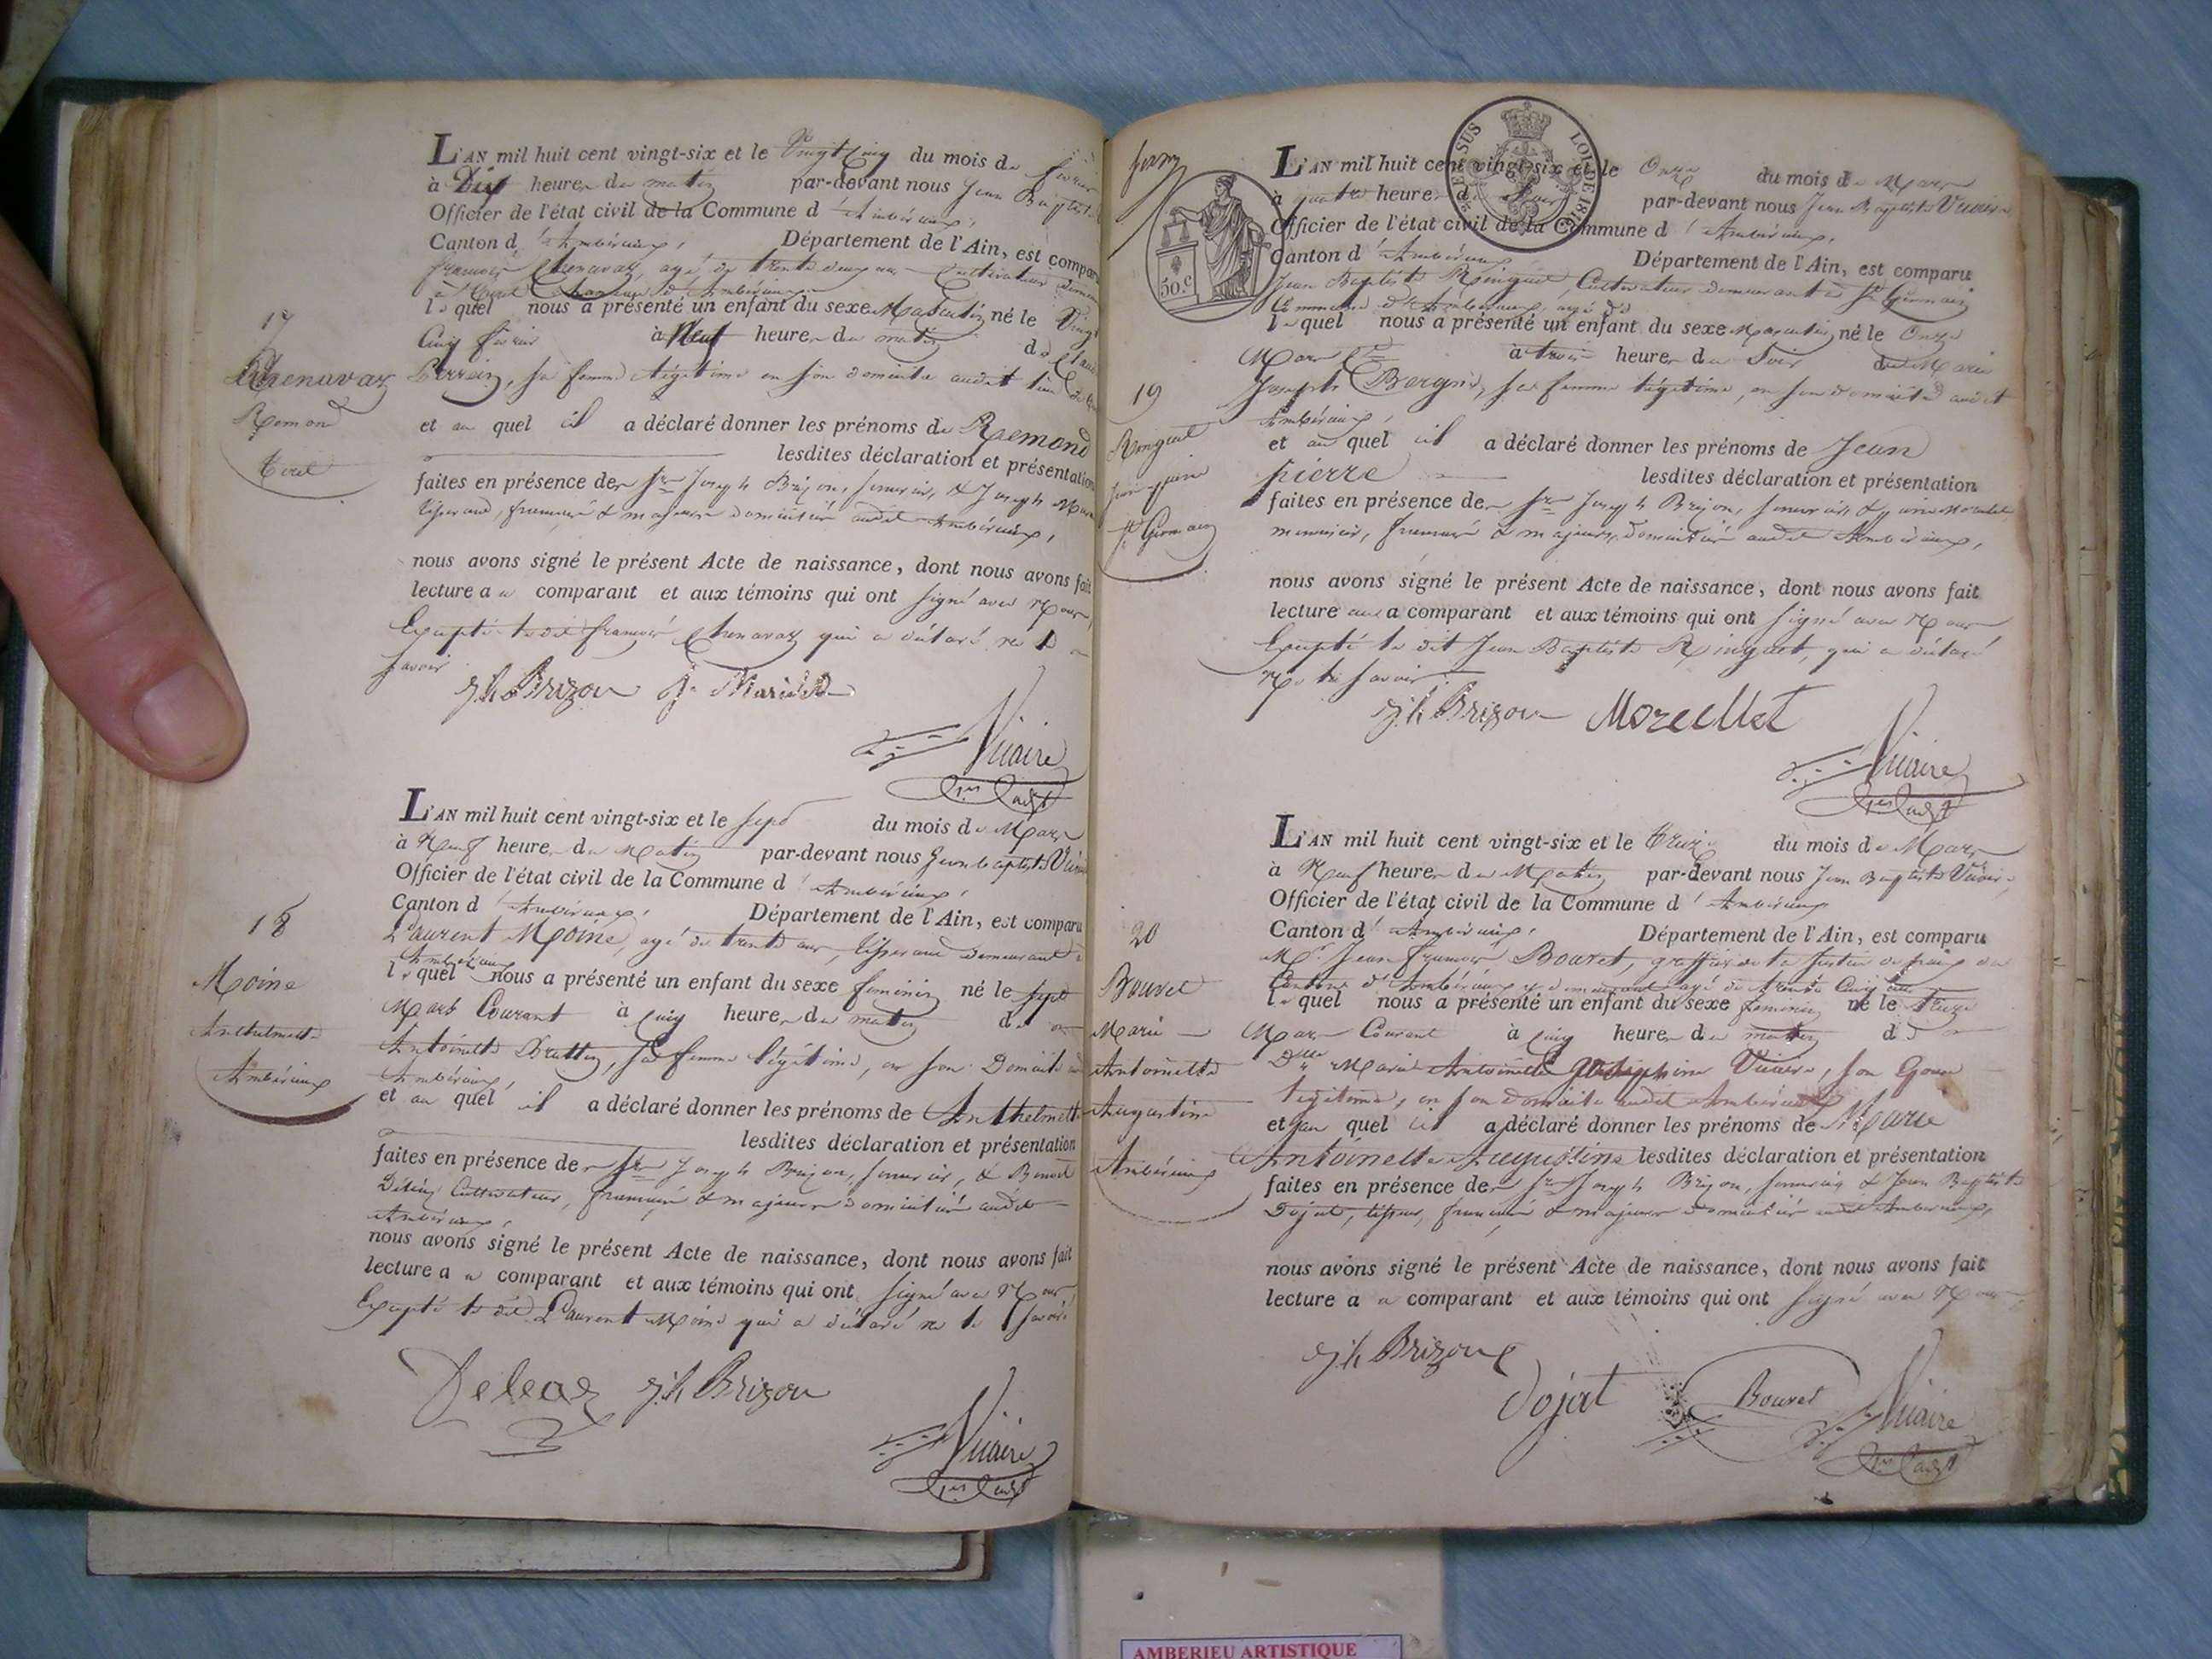 L'AN mil huit cent vingt-six et le Vingt Cinq du mois de fevrier
à Dix heures du matin par-devant nous Jean Baptiste
Officier de l'état civil de la Commune d'Ambérieux,
Canton d'Ambérieux, Département de l'Ain, est comparu
françois Chenavaz, agé de trente deux ans Cultivateur
à Tiret d'Ambérieux
lequel nous a présenté un enfant du sexe Masculin né le Vingt
Cinq fevrier à Neuf heures du matin de
Perrin, sa femme légitime en son domicile audit lieu
17
Chenavaz
Remond
Tiret
et au quel il a déclaré donner les prénoms de Remond
lesdites déclaration et présentation
faites en présence des Srs Joseph Brizon, & Joseph Marie
Tisserand, français & majeurs domiciliés audit Ambérieux,
nous avons signé le présent Acte de naissance, dont nous avons fait
lecture au comparant et aux témoins qui ont signé avec Nous,
Excepté le dit françois Chenavaz qui a déclaré ne le
savoir
jh Brizon
Vicaire
L'AN mil huit cent vingt-six et le sept du mois de Mars
à Neuf heures du Matin par-devant nous Jean baptiste
Officier de l'état civil de la Commune d'Ambérieux,
Canton d'Ambérieux, Département de l'Ain, est comparu
Laurent Moine, agé de trente ans, tisserand demeurant à
Ambérieux
lequel nous a présenté un enfant du sexe feminin né le sept
Mars Courant à cinq heures du matin de
Antoinette sa femme légitime, en son Domicile
Ambérieux,
18
Moine
Anthelmette
Ambérieux
et au quel il a déclaré donner les prénoms de Anthelmette
lesdites déclaration et présentation
faites en présence des Srs Joseph Brizon, & Benoit
Cultivateur, français & majeurs domiciliés audit
Ambérieux,
nous avons signé le présent Acte de naissance, dont nous avons fait
lecture au comparant et aux témoins qui ont signé avec Nous,
Excepté le dit Laurent Moine qui a déclaré ne le savoir
Deleaz jh Brizon
Vicaire
CENSUS LOI DE 1816
50 c
L'AN mil huit cent vingt-six et le Onze du mois de Mars
à quatre heures du Soir par-devant nous Jean Baptiste
Officier de l'état civil de la Commune d'Ambérieux,
Canton d'Ambérieux Département de l'Ain, est comparu
Jean Baptiste Ringuet, Cultivateur demeurant à St Germain
Commune d'Ambérieux, agé de
lequel nous a présenté un enfant du sexe Masculin né le Onze
Mars à trois heures du Soir de Marie
Josephte sa femme légitime, en son domicile audit
Ambérieux,
19
Ringuet
Jean pierre
St Germain
et au quel il a déclaré donner les prénoms de Jean
pierre lesdites déclaration et présentation
faites en présence des Srs Joseph Brizon, & pierre Morellet
menuisier, français & majeurs, domiciliés audit Ambérieux,
nous avons signé le présent Acte de naissance, dont nous avons fait
lecture au comparant et aux témoins qui ont signé avec Nous
Excepté le dit Jean Baptiste Ringuet, qui a déclaré
Ne le savoir.
jh Brizon Morellet
Vicaire
L'AN mil huit cent vingt-six et le treize du mois de Mars
à Neuf heures du Matin par-devant nous Jean Baptiste
Officier de l'état civil de la Commune d'Ambérieux
Canton d'Ambérieux, Département de l'Ain, est comparu
Mr Jean françois Bouvet, greffier de la Justice de paix du
Canton d'Ambérieux y demeurant agé de trente Cinq ans
lequel nous a présenté un enfant du sexe feminin né le treize
Mars Courant à cinq heures du matin de
Marie Antoinette Josephine son Epouse
légitime, en son domicile audit Ambérieux
20
Bouvet
Marie
Antoinette
Augustine
Ambérieux
et au quel il a déclaré donner les prénoms de Marie
Antoinette Augustine lesdites déclaration et présentation
faites en présence des Srs Joseph Brizon, & Jean Baptiste
Dojat, français & majeurs domiciliés audit Ambérieux,
nous avons signé le présent Acte de naissance, dont nous avons fait
lecture au comparant et aux témoins qui ont signé avec Nous
jh Brizon
Dojat Bouvet Vicaire
AMBERIEU ARTISTIQUE